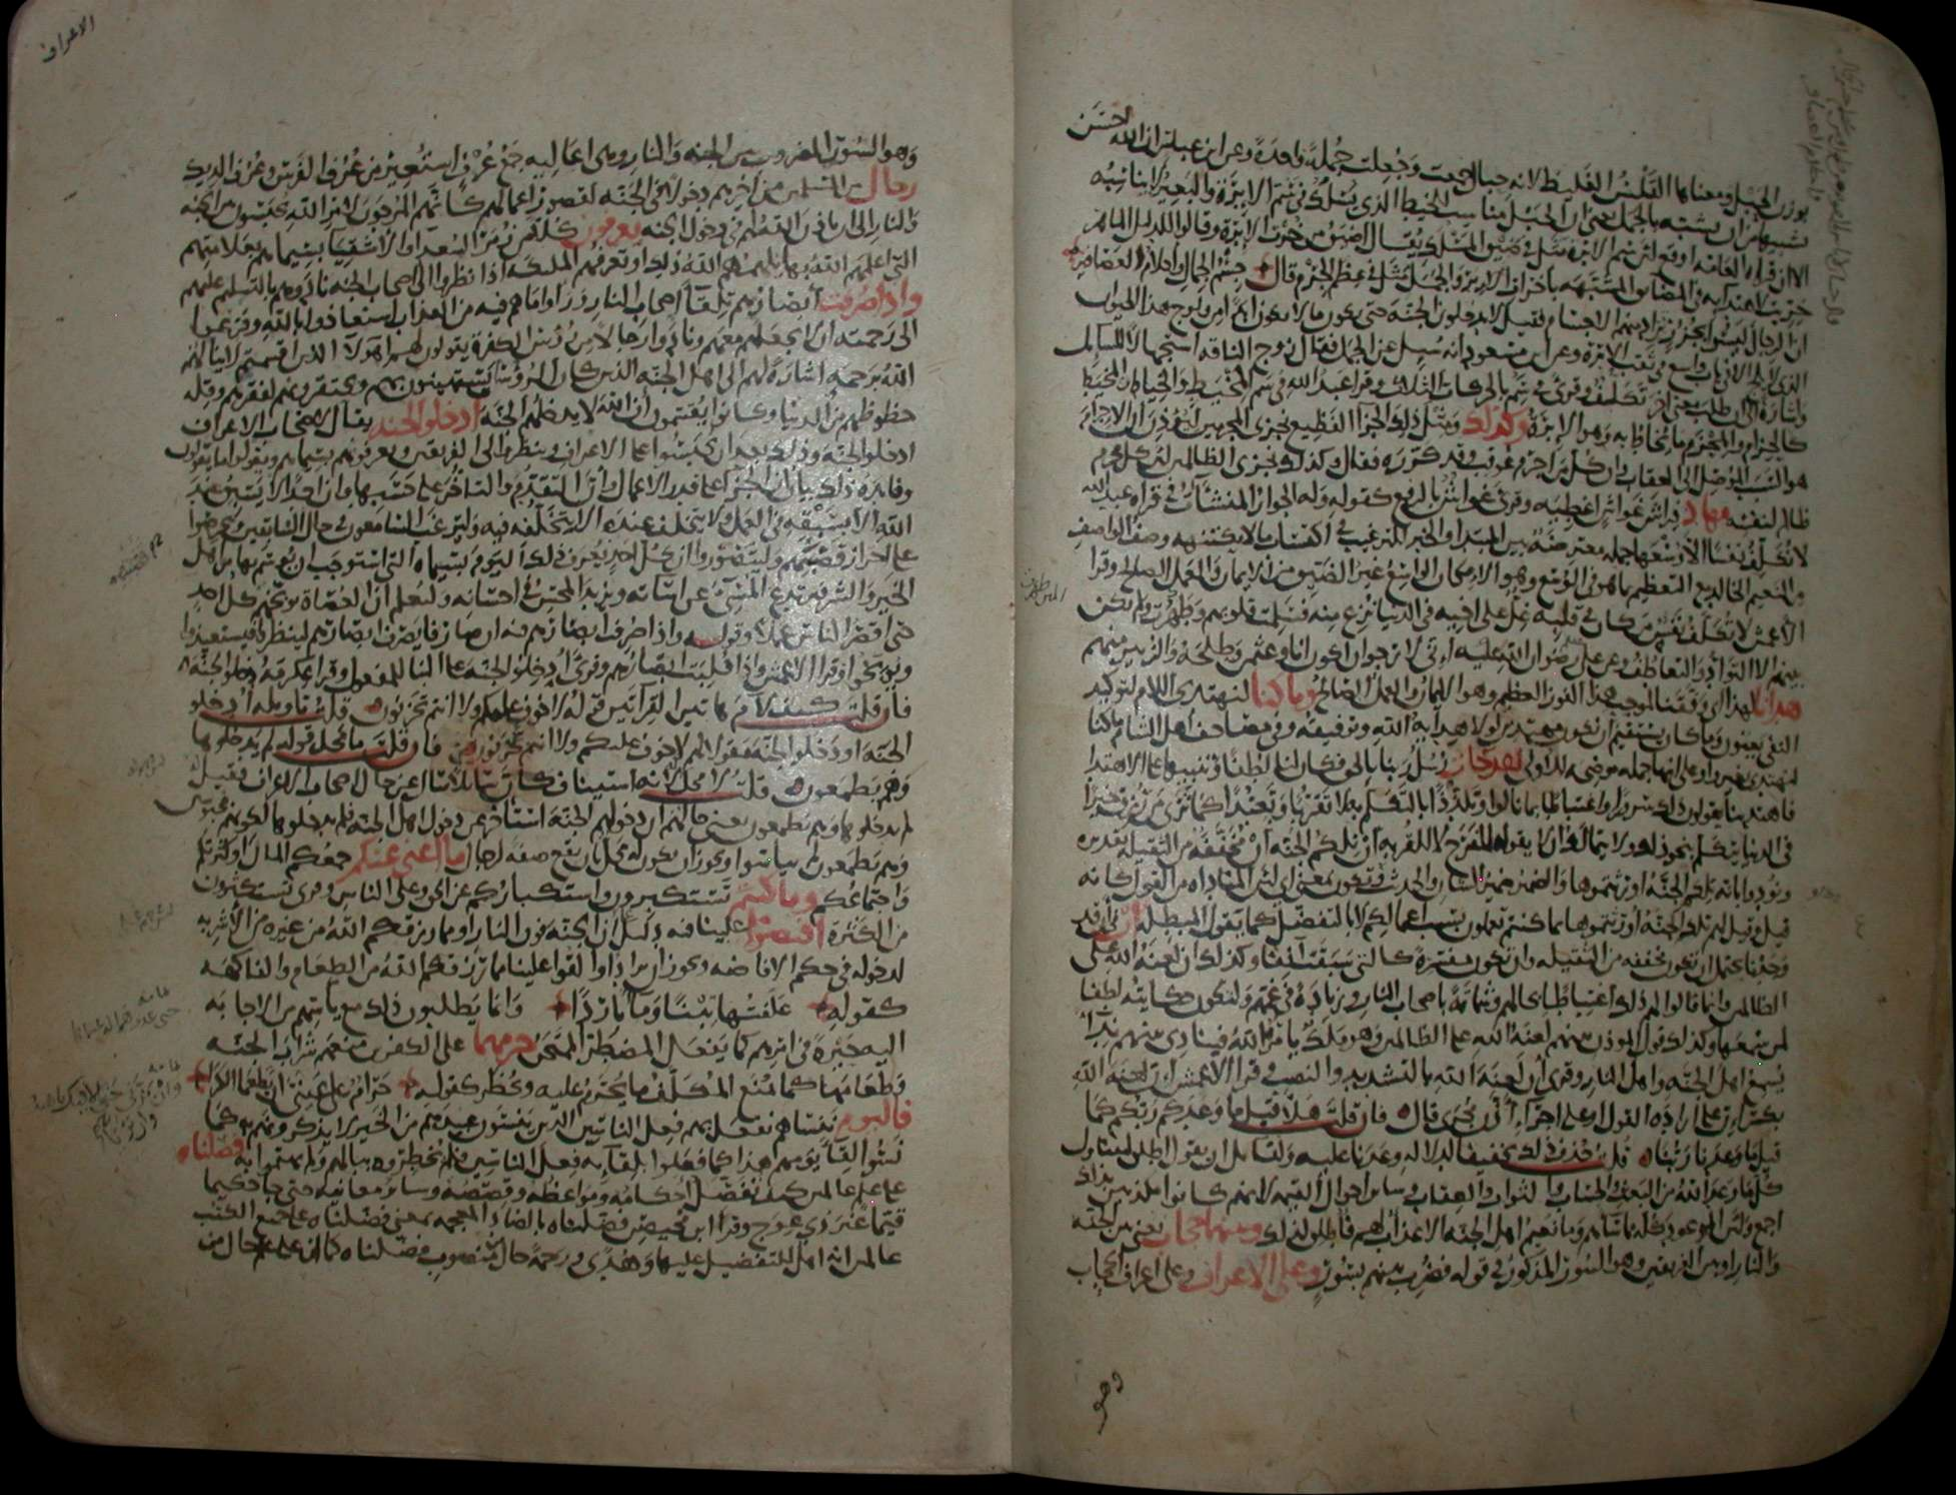 بوزن الحبل ومعناها القلس الغليظ لانه حبال جمعت وجعلت جملة واحدة وعن ابن عباس ان الله احسن
تشبيها من ان يشبه بالجمل يعني ان الحبل مناسب للخيط الذي يسلك في سم الابرة والبعير لا يناسبه
الا ان قراءة العامة اوقع لان سم الابرة مثل في ضيق المسلك يقال اضيق من خرت الابرة وقالوا للدليل الماهر
خريت للاهتداء به في المضايق المشبهة باخرات الابرة والجمل مثل في عظم الجرم قال جسم الجمال واحلام العصافير
ان الرجال ليسوا بجزر تراد منهم الاجسام فقيل لا يدخلون الجنة حتى يكون ما لا يكون ابدا من ولوج هذا الحيوان
الذي لا يلج الا في باب واسع في ثقب الابرة وعن ابن مسعود انه سئل عن الجمل فقال زوج الناقة استجهالا للسائل
واشارة الى ان طلب معنى اخر تكلف وقرئ في سم بالحركات الثلاث وقرا عبد الله في سم المخيط والخياط والمخيط
كالحزام والمحزم ما يخاط به وهو الابرة وكذلك ومثل ذلك الجزا الفظيع نجزي المجرمين ليؤذن ان الاجرام
هو السبب الموصل الى العقاب وان كل من اجرم عوقب وقد كرره فقال كذلك نجزي الظالمين لان كل مجرم
ظالم لنفسه مهاد فراش غواش اغطية وقرئ غواش بالرفع كقوله وله الجوار المنشآت في قراة عبد الله
لا نكلف نفسا الا وسعها جملة معترضة بين المبتدا والخبر للترغيب في اكتساب ما لا يكتنهه وصف الواصف
من النعيم الخالد مع التعظيم بما هو في الوسع وهو الامكان الواسع غير الضيق من الايمان والعمل الصالح وقرا
الاعمش لا تكلف نفس من كان في قلبه غل على اخيه في الدنيا نزع منه فسلمت قلوبهم وطهرت ولم يكن
بينهم الا التواد والتعاطف وعن علي رضوان الله عليه اني لارجو ان اكون انا وعثمن وطلحة والزبير منهم
هدانا لهذا اي وفقنا لموجب هذا الفوز العظيم وهو الايمان والعمل الصالح وما كنا لنهتدي اللام لتوكيد
النفي يعنون وما كان يستقيم ان نكون مهتدين لولا هداية الله وتوفيقه وفي مصاحف اهل الشام ما كنا
لنهتدي بغير واو على انها جملة موضحة للاولى لقد جات رسل ربنا بالحق فكان لنا لطفا وتنبيها على الاهتدا
فاهتدينا يقولون ذلك سرورا واغتباطا بما نالوا وتلذذا بالتكلم به لا تقربا وتعبدا كما ترى من رزق خيرا
في الدنيا يتكلم بنحو ذلك ولا يتمالك ان لا يقوله للفرح لا للقربة ان تلكم الجنة ان مخففة من الثقيلة تقديره
ونودوا بانه تلكم الجنة اورثتموها والضمير ضمير الشان والحديث او تكون بمعنى اي لان المناداة من القول كانه
قيل وقيل لهم تلكم الجنة اورثتموها بما كنتم تعملون بسبب اعمالكم لا بالتفضل كما تقول المبطلة ان في ان قد
وجدنا يحتمل ان تكون مخففة من الثقيلة وان تكون مفسرة كالتي سبقت انفا وكذلك ان لعنة الله على
الظالمين وانما قالوا لهم ذلك اغتباطا بحالهم وشماتة باصحاب النار وزيادة في غمهم ولتكون حكايته لطفا
لمن سمعها وكذلك قول المؤذن بينهم لعنة الله على الظالمين وهو ملك يامره الله فينادي بينهم نداء
يسمع اهل الجنة واهل النار وقرئ ان لعنة الله بالتشديد والنصب وقرا الاعمش ان لعنة الله
بكسر ان على ارادة القول او على اجراء اذن مجرى قال فان قلت هلا قيل ما وعدكم ربكم كما
قيل ما وعدنا ربنا قلت حذف ذلك تخفيفا لدلالة وعدنا عليه ولقائل ان يقول اطلق ليتناول
كل ما وعد الله من البعث والحساب والثواب والعقاب وسائر احوال القيمة لانهم كانوا مكذبين بذلك
اجمع ولان الموعود كله مما ساهم وما نعيم اهل الجنة الا عذاب لهم فاطلق لذلك وبينهما حجاب يعني بين الجنة
والنار او بين الفريقين وهو السور المذكور في قوله فضرب بينهم بسور وعلى الاعراف وعلى اعراف الحجاب
وهو
الاعراف
وهو السور المضروب بين الجنة والنار وهي اعاليه جمع عرف استعير من عرف الفرس وعرف الديك
رجال من المسلمين من اخرهم دخولا في الجنة لقصور اعمالهم كانهم المرجون لامر الله يحبسون بين الجنة
والنار الى ان ياذن الله لهم في دخول الجنة يعرفون كلا من زمر السعدا والاشقيا بسيماهم بعلامتهم
التي اعلمهم الله بها يلهمهم الله ذلك او تعرفهم الملئكة اذا نظروا الى اصحاب الجنة نادوهم بالتسليم عليهم
واذا صرفت ابصارهم تلقا اصحاب النار وراوا ما هم فيه من العذاب استعاذوا بالله وفزعوا
الى رحمته ان لا يجعلهم معهم ونادوا رجالا من رؤس الكفرة يقولون لهم اهؤلا الذين اقسمتم لا ينالهم
الله برحمة اشارة لهم الى اهل الجنة الذين كان الرؤسا يستهينون بهم ويحتقرونهم لفقرهم وقلة
حظوظهم من الدنيا وكانوا يقسمون ان الله لا يدخلهم الجنة ادخلوا الجنة يقال لاصحاب الاعراف
ادخلوا الجنة وذلك بعد ان يحبسوا على الاعراف وينظروا الى الفريقين ويعرفوهم بسيماهم ويقولوا ما يقولون
وفائدة ذلك بيان ان الجزا على قدر الاعمال وان التقدم والتاخر على حسبها وان احدا لا يسبق عند
الله الا بسبقه في العمل ولا يتخلف عنده الا بتخلفه فيه وليرغب السامعون في حال السابقين ويحرصوا
على احراز قصبتهم وليتصوروا ان كل احد يعرف ذلك اليوم بسيماه التي استوجب ان يوسم بها من اهل
الخير والشر فيرتدع المسيء عن اساته ويزيد المحسن في احسانه وليعلم ان العصاة يوبخهم كل احد
حتى اقصر الناس عملا وقوله واذا صرفت ابصارهم فيه ان صارفا يصرف ابصارهم لينظروا فيستعيذوا
ويوبخوا وقرا الاعمش واذا قلبت ابصارهم وقرئ ادخلوا الجنة على البنا للمفعول وقرا عكرمة دخلوا الجنة
فان قلت كيف لاءم هاتين القراتين قوله لا خوف عليكم ولا انتم تحزنون قلت تاويله ادخلوا
الجنة او دخلوا الجنة مقولا لهم لا خوف عليكم ولا انتم تحزنون فان قلت ما محل قوله لم يدخلوها
وهم يطمعون قلت لا محل له لانه استيناف كان سائلا سال عن حال اصحاب الاعراف فقيل له
لم يدخلوها وهم يطمعون يعني حالهم ان دخولهم الجنة استاخر عن دخول اهل الجنة فلم يدخلوها لكونهم محبوسين
وهم يطمعون لم يياسوا ويجوز ان يكون له محل بان يقع صفة لرجال ما اغنى عنكم جمعكم المال او كثرتكم
واجتماعكم وما كنتم تستكبرون واستكباركم عن الحق وعلى الناس وقرئ تستكثرون
من الكثرة افيضوا علينا فيه دليل ان الجنة فوق النار او مما رزقكم الله من غيره من الاشربة
لدخوله في حكم الافاضة ويجوز ان يراد او القوا علينا مما رزقكم الله من الطعام والفاكهة
كقوله علفتها تبنا وماء باردا وانما يطلبون ذلك مع ياسهم من الاجابة
اليه حيرة في امرهم كما يفعل المضطر الممتحن حرمهما على الكفرين منعهم شراب الجنة
وطعامها كما منع المكلف ما يحرم عليه ويحظر كقوله حرام على عيني ان تطعما الكرا
فاليوم ننساهم نفعل بهم فعل الناسين الذين ينسون عبيدهم من الخير لا يذكرونهم به كما
نسوا لقا يومهم هذا كما فعلوا بلقائه فعل الناسين فلم يخطروه ببالهم ولم يهتموا به فصلناه
على علم عالمين كيف نفصل احكامه ومواعظه وقصصه وسائر معانيه حتى جا حكيما
قيما غير ذي عوج وقرا ابن محيصن فضلناه بالضاد المعجمة بمعنى فضلناه على جميع الكتب
عالمين انه اهل للتفضيل عليها وهدى ورحمة حال من منصوب فصلناه كما ان على علم حال من